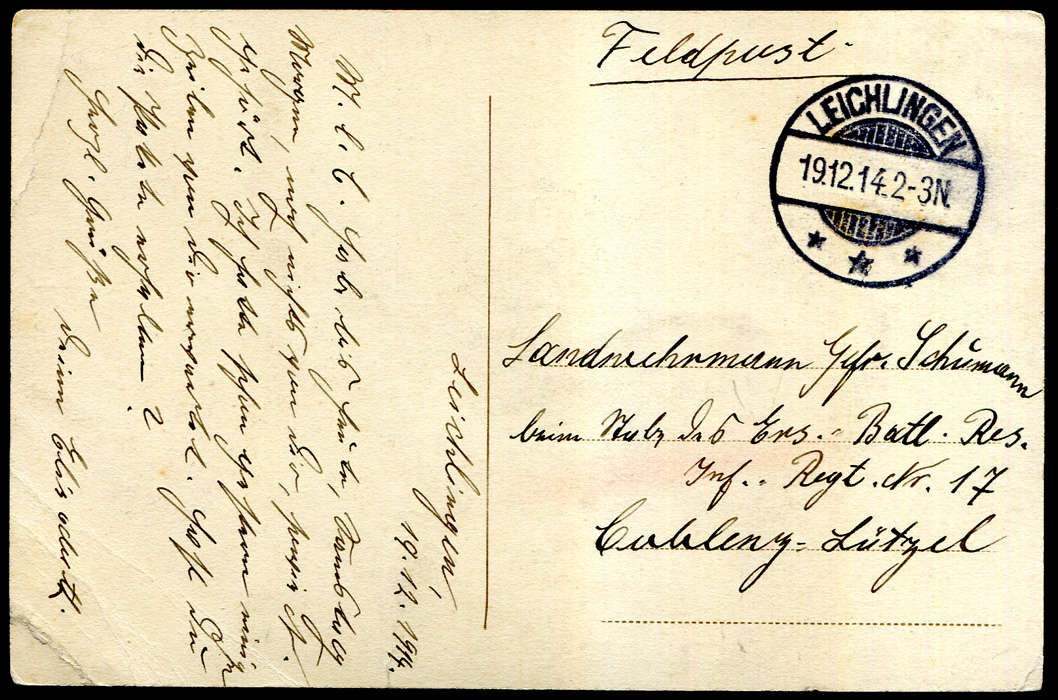 Feldpost
LEICHLINGEN
19.12.14.2-3N.
Landwehrmann Gefr. Schümann
beim Stabe des Ers.-Batl. Res.
Inf.-Regt. Nr. 17
Coblenz-Lützel
Leichlingen,
19.12.1914.
M. l. C. Habe bis heute, Samstag
Morgen, noch nichts von Dir,
gehört. Ich hatte schon gestern einige
Zeilen von Dir erwartet. Hast Du
die Pakete erhalten?
Herzl. Grüße
Deine